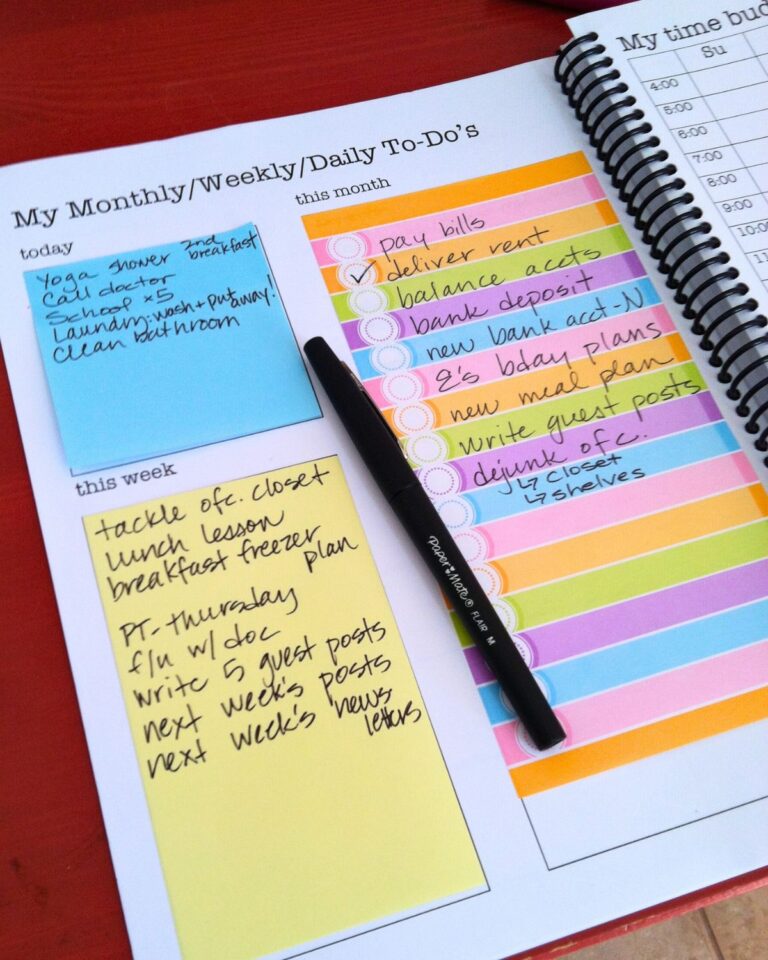 My time bud
Su
4:00
5:00
6:00
7:00
8:00
9:00
10:0
11:
My Monthly/Weekly/Daily To-Do's
today
Yoga shower 2nd breakfast
Call doctor
School x5
Laundry: wash + put away!
Clean bathroom
this week
tackle ofc. closet
lunch lesson
breakfast freezer
plan
PT- thursday
f/u w/ doc
write 5 guest posts
next week's posts
next week's news
letters
this month
pay bills
✓ deliver rent
balance accts
bank deposit
new bank acct-N
E's bday plans
new meal plan
write guest posts
dejunk ofc.
↳ closet
↳ shelves
Paper Mate® FLAIR M